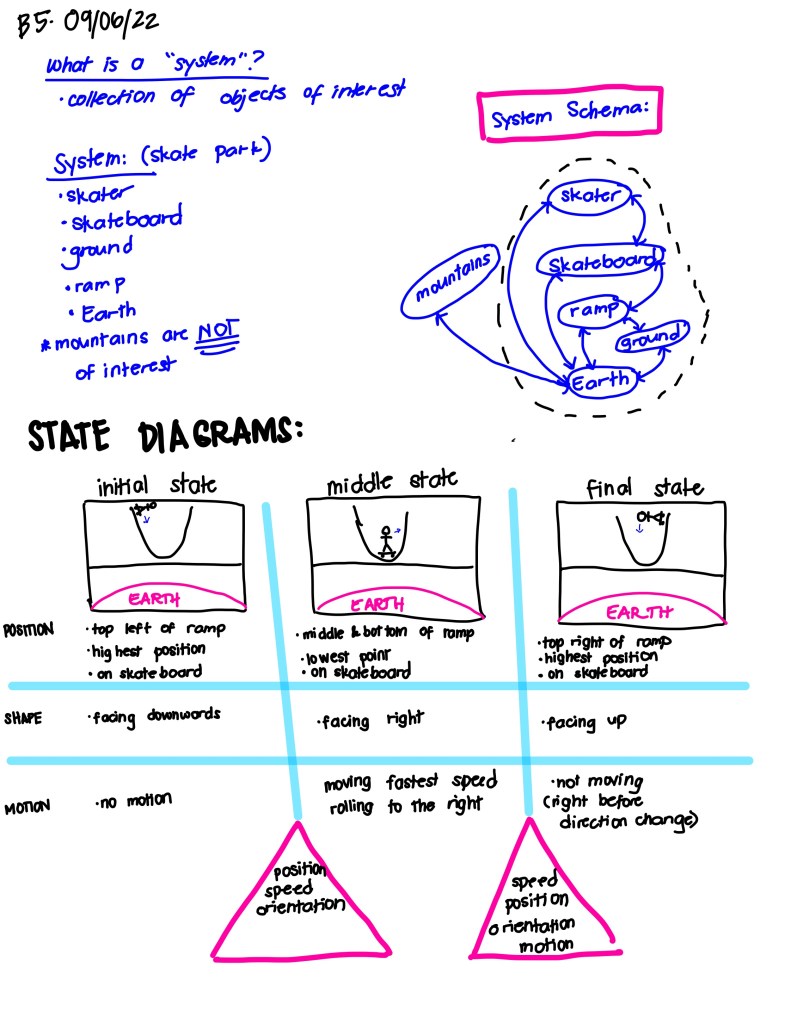 B5. 09/06/22
What is a "system"?
· collection of objects of interest
System: (skate park)
· skater
· skateboard
· ground
· ramp
· Earth
* mountains are NOT
of interest
System Schema:
skater
mountains
Skateboard
ramp
ground
Earth
STATE DIAGRAMS:
initial state
middle state
final state
EARTH
EARTH
EARTH
POSITION
· top left of ramp
· highest position
· on skateboard
· middle & bottom of ramp
· lowest point
· on skateboard
· top right of ramp
· highest position
· on skateboard
SHAPE
· facing downwards
· facing right
· facing up
MOTION
· no motion
moving fastest speed
rolling to the right
· not moving
(right before
direction change)
position
speed
orientation
speed
position
orientation
motion